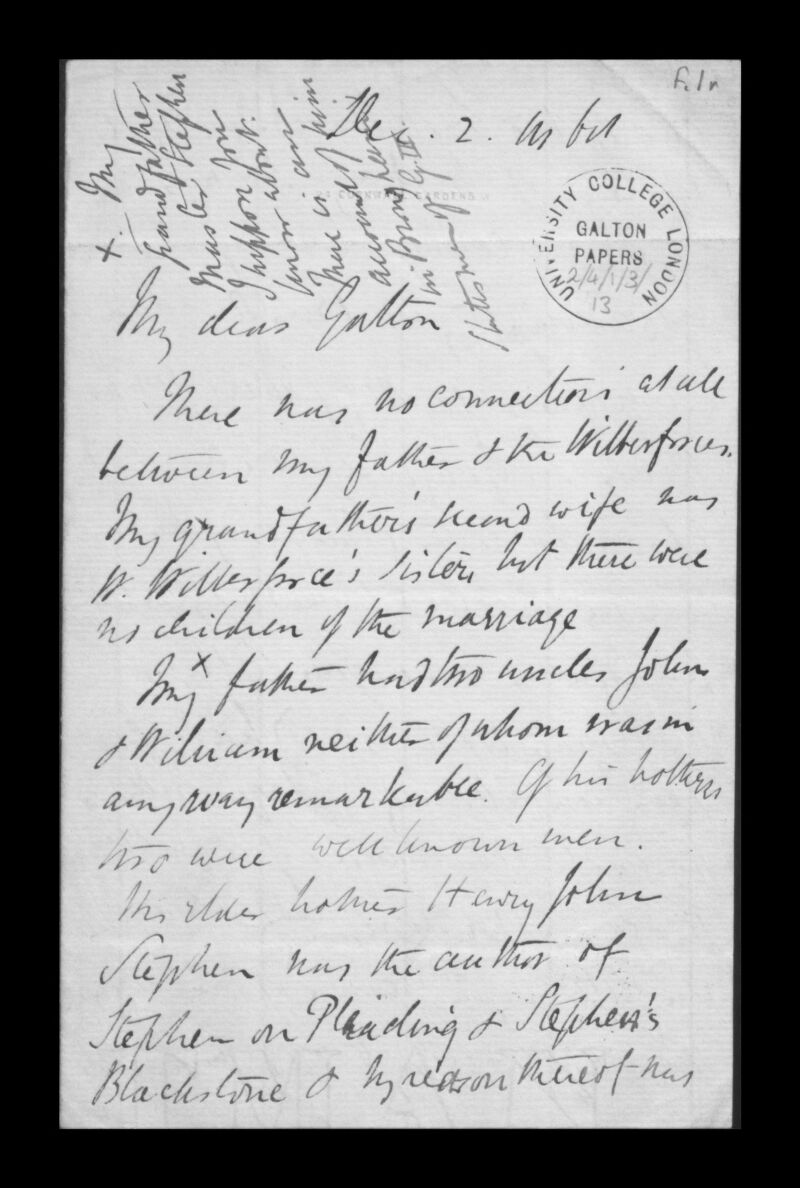 f.1r
Dec. 2.
24 CORNWALL GARDENS
UNIVERSITY COLLEGE LONDON
GALTON
PAPERS
2/4/1/3/
13
x. My
Grandfather
James Stephen
Master
I suppose you
know about.
There is an
account of him
in Brougham's
Statesmen of
My dear Galton
There was no connection at all
between my father & the Wilberforces.
My grandfather's second wife was
W. Wilberforce's sister, but there were
no children of the marriage
My x father had two uncles John
& William neither of whom was in
any way remarkable. Of his brothers
two were well known men.
His elder brother Henry John
Stephen was the author of
Stephen on Pleading & Stephen's
Blackstone & by reason thereof was